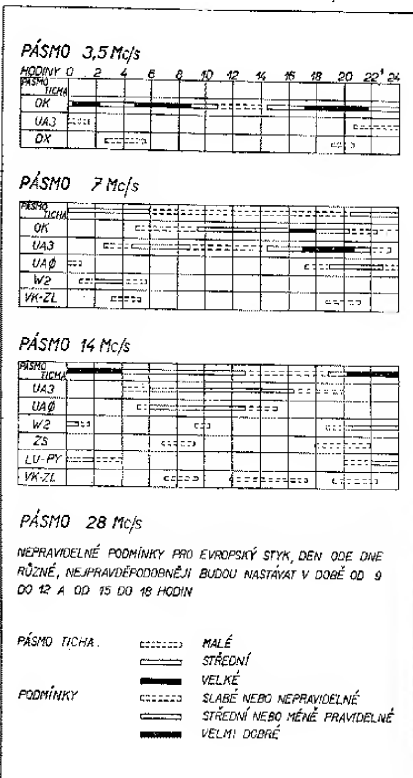 PÁSMO 3,5 Mc/s
HODINY 0 2 4 6 8 10 12 14 16 18 20 22 24
PÁSMO TICHA
OK
UA3
DX
PÁSMO 7 Mc/s
PÁSMO TICHA
OK
UA3
UAØ
W2
VK-ZL
PÁSMO 14 Mc/s
PÁSMO TICHA
UA3
UAØ
W2
ZS
LU-PY
VK-ZL
PÁSMO 28 Mc/s
NEPRAVIDELNÉ PODMÍNKY PRO EVROPSKÝ STYK, DEN ODE DNE
RŮZNÉ, NEJPRAVDĚPODOBNĚJI BUDOU NASTÁVAT V DOBĚ OD 9
DO 12 A OD 15 DO 18 HODIN
PÁSMO TICHA. MALÉ
STŘEDNÍ
VELKÉ
PODMÍNKY SLABÉ NEBO NEPRAVIDELNÉ
STŘEDNÍ NEBO MÉNĚ PRAVIDELNÉ
VELMI DOBRÉ